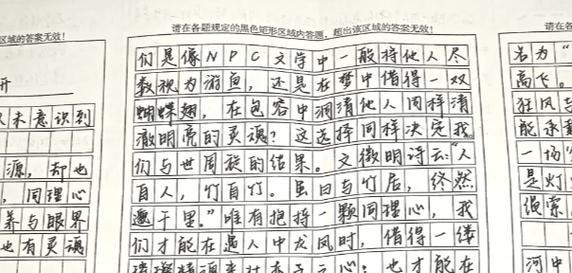 区域的答案无效！
请在各题规定的黑色矩形区域内答题，超出该区域的答案无效！
请在各
开
从未意识到
源，却也
，同理心
养与眼界
也有灵魂
们是像NPC文学中一般将他人尽
数视为游鱼，还是在梦中借得一双
蝴蝶翅，在包容中洞清他人同样清
澈明亮的灵魂？这选择同样决定我
们与世周旋的结果。文徵明诗云:“人
自人，竹自竹。虽日与竹居，终然
邈千里。”唯有抱持一颗同理心，我
们才能在遇人中龙凤时，借得一缕
之心；也才能在
名为“
高飞。
狂风与
能承
一场
是灯
绳索，
河中